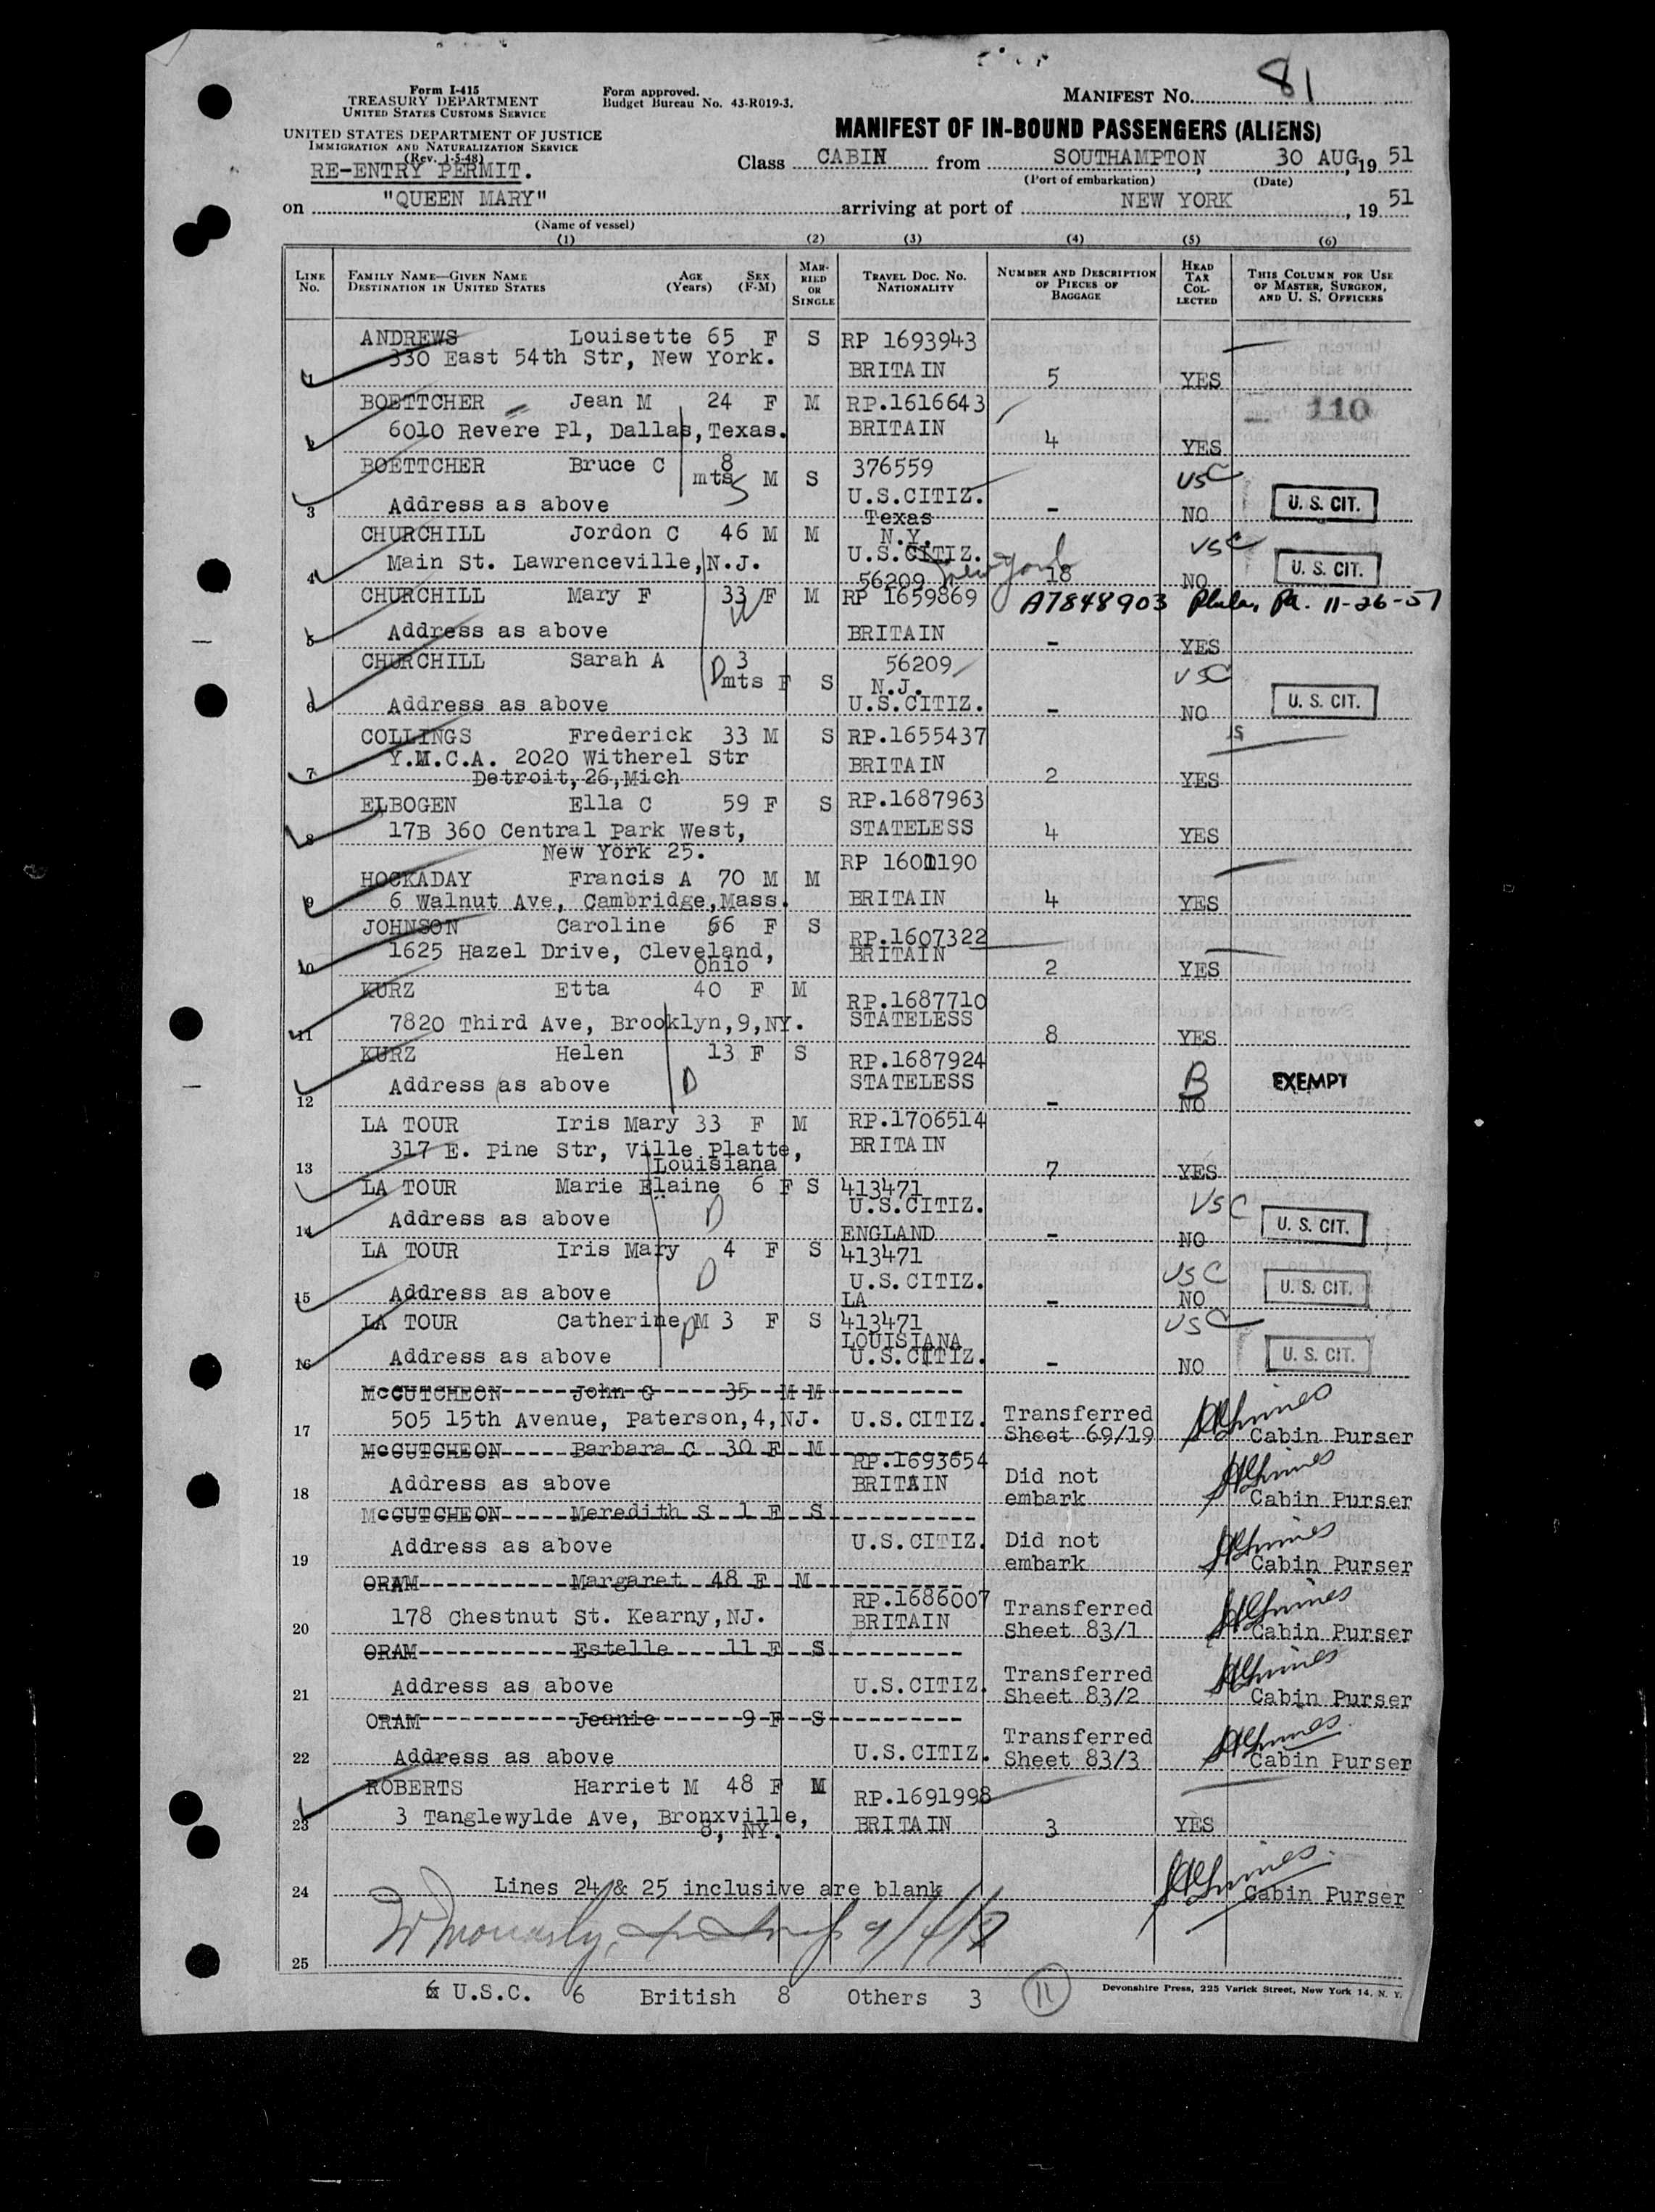 81
Form I-415
TREASURY DEPARTMENT
UNITED STATES CUSTOMS SERVICE
Form approved.
Budget Bureau No. 43-R019-3.
MANIFEST NO.
UNITED STATES DEPARTMENT OF JUSTICE
IMMIGRATION AND NATURALIZATION SERVICE
(Rev. 1-5-48)
MANIFEST OF IN-BOUND PASSENGERS (ALIENS)
RE-ENTRY PERMIT.
Class CABIN from SOUTHAMPTON, 30 AUG, 19 51
(Port of embarkation) (Date)
on "QUEEN MARY" arriving at port of NEW YORK, 19 51
(Name of vessel)
(1) (2) (3) (4) (5) (6)
LINE NO. FAMILY NAME—GIVEN NAME DESTINATION IN UNITED STATES AGE (Years) SEX (F-M) MARRIED OR SINGLE TRAVEL DOC. NO. NATIONALITY NUMBER AND DESCRIPTION OF PIECES OF BAGGAGE HEAD TAX COLLECTED THIS COLUMN FOR USE OF MASTER, SURGEON, AND U. S. OFFICERS
ANDREWS Louisette 65 F S RP 1693943
330 East 54th Str, New York.
1 BRITAIN 5 YES
BOETTCHER Jean M 24 F M RP.1616643 110
6010 Revere Pl, Dallas, Texas. BRITAIN
2 4 YES
BOETTCHER Bruce C 8 mts M S 376559 USC
3 Address as above U.S.CITIZ. - NO U. S. CIT.
Texas
CHURCHILL Jordon C 46 M M N.Y. USC
4 Main St. Lawrenceville, N.J. U.S.CITIZ. New York 18 NO U. S. CIT.
56209
CHURCHILL Mary F 33 F M RP 1659869 A7848903 Phila, Pa. 11-26-57
5 Address as above BRITAIN - YES
CHURCHILL Sarah A 3 mts F S 56209 USC
N.J.
6 Address as above U.S.CITIZ. - NO U. S. CIT.
COLLINGS Frederick 33 M S RP.1655437
Y.M.C.A. 2020 Witherel Str BRITAIN
7 Detroit, 26, Mich 2 YES
ELBOGEN Ella C 59 F S RP.1687963
8 17B 360 Central Park West, STATELESS 4 YES
New York 25.
HOCKADAY Francis A 70 M M RP 1601190
9 6 Walnut Ave, Cambridge, Mass. BRITAIN 4 YES
JOHNSON Caroline 66 F S RP.1607322
1625 Hazel Drive, Cleveland, BRITAIN
10 Ohio 2 YES
KURZ Etta 40 F M RP.1687710
11 7820 Third Ave, Brooklyn, 9, NY. STATELESS 8 YES
KURZ Helen 13 F S RP.1687924
Address as above D STATELESS B EXEMPT
12 - NO
LA TOUR Iris Mary 33 F M RP.1706514
317 E. Pine Str, Ville Platte, BRITAIN
13 Louisiana 7 YES
LA TOUR Marie Elaine 6 F S 413471 USC
Address as above D U.S.CITIZ. U. S. CIT.
14 ENGLAND - NO
LA TOUR Iris Mary 4 F S 413471
Address as above D U.S.CITIZ. USC U. S. CIT.
15 LA - NO
LA TOUR Catherine M 3 F S 413471 USC
LOUISIANA
16 Address as above D U.S.CITIZ. - NO U. S. CIT.
McCUTCHEON John G 35 M M
505 15th Avenue, Paterson, 4, NJ. U.S.CITIZ. Transferred
17 Sheet 69/19 Cabin Purser
McCUTCHEON Barbara C 30 F M RP.1693654
Address as above BRITAIN Did not
18 embark Cabin Purser
McCUTCHEON Meredith S 1 F S
Address as above U.S.CITIZ. Did not
19 embark Cabin Purser
ORAM Margaret 48 F M RP.1686007
178 Chestnut St. Kearny, NJ. BRITAIN Transferred
20 Sheet 83/1 Cabin Purser
ORAM Estelle 11 F S
Address as above U.S.CITIZ. Transferred
21 Sheet 83/2 Cabin Purser
ORAM Jeanie 9 F S
Transferred
22 Address as above U.S.CITIZ. Sheet 83/3 Cabin Purser
ROBERTS Harriet M 48 F M RP.1691998
3 Tanglewylde Ave, Bronxville, BRITAIN 3 YES
23 8, NY.
24 Lines 24 & 25 inclusive are blank Cabin Purser
25
6 U.S.C. 6 British 8 Others 3 11 Devonshire Press, 225 Varick Street, New York 14, N. Y.